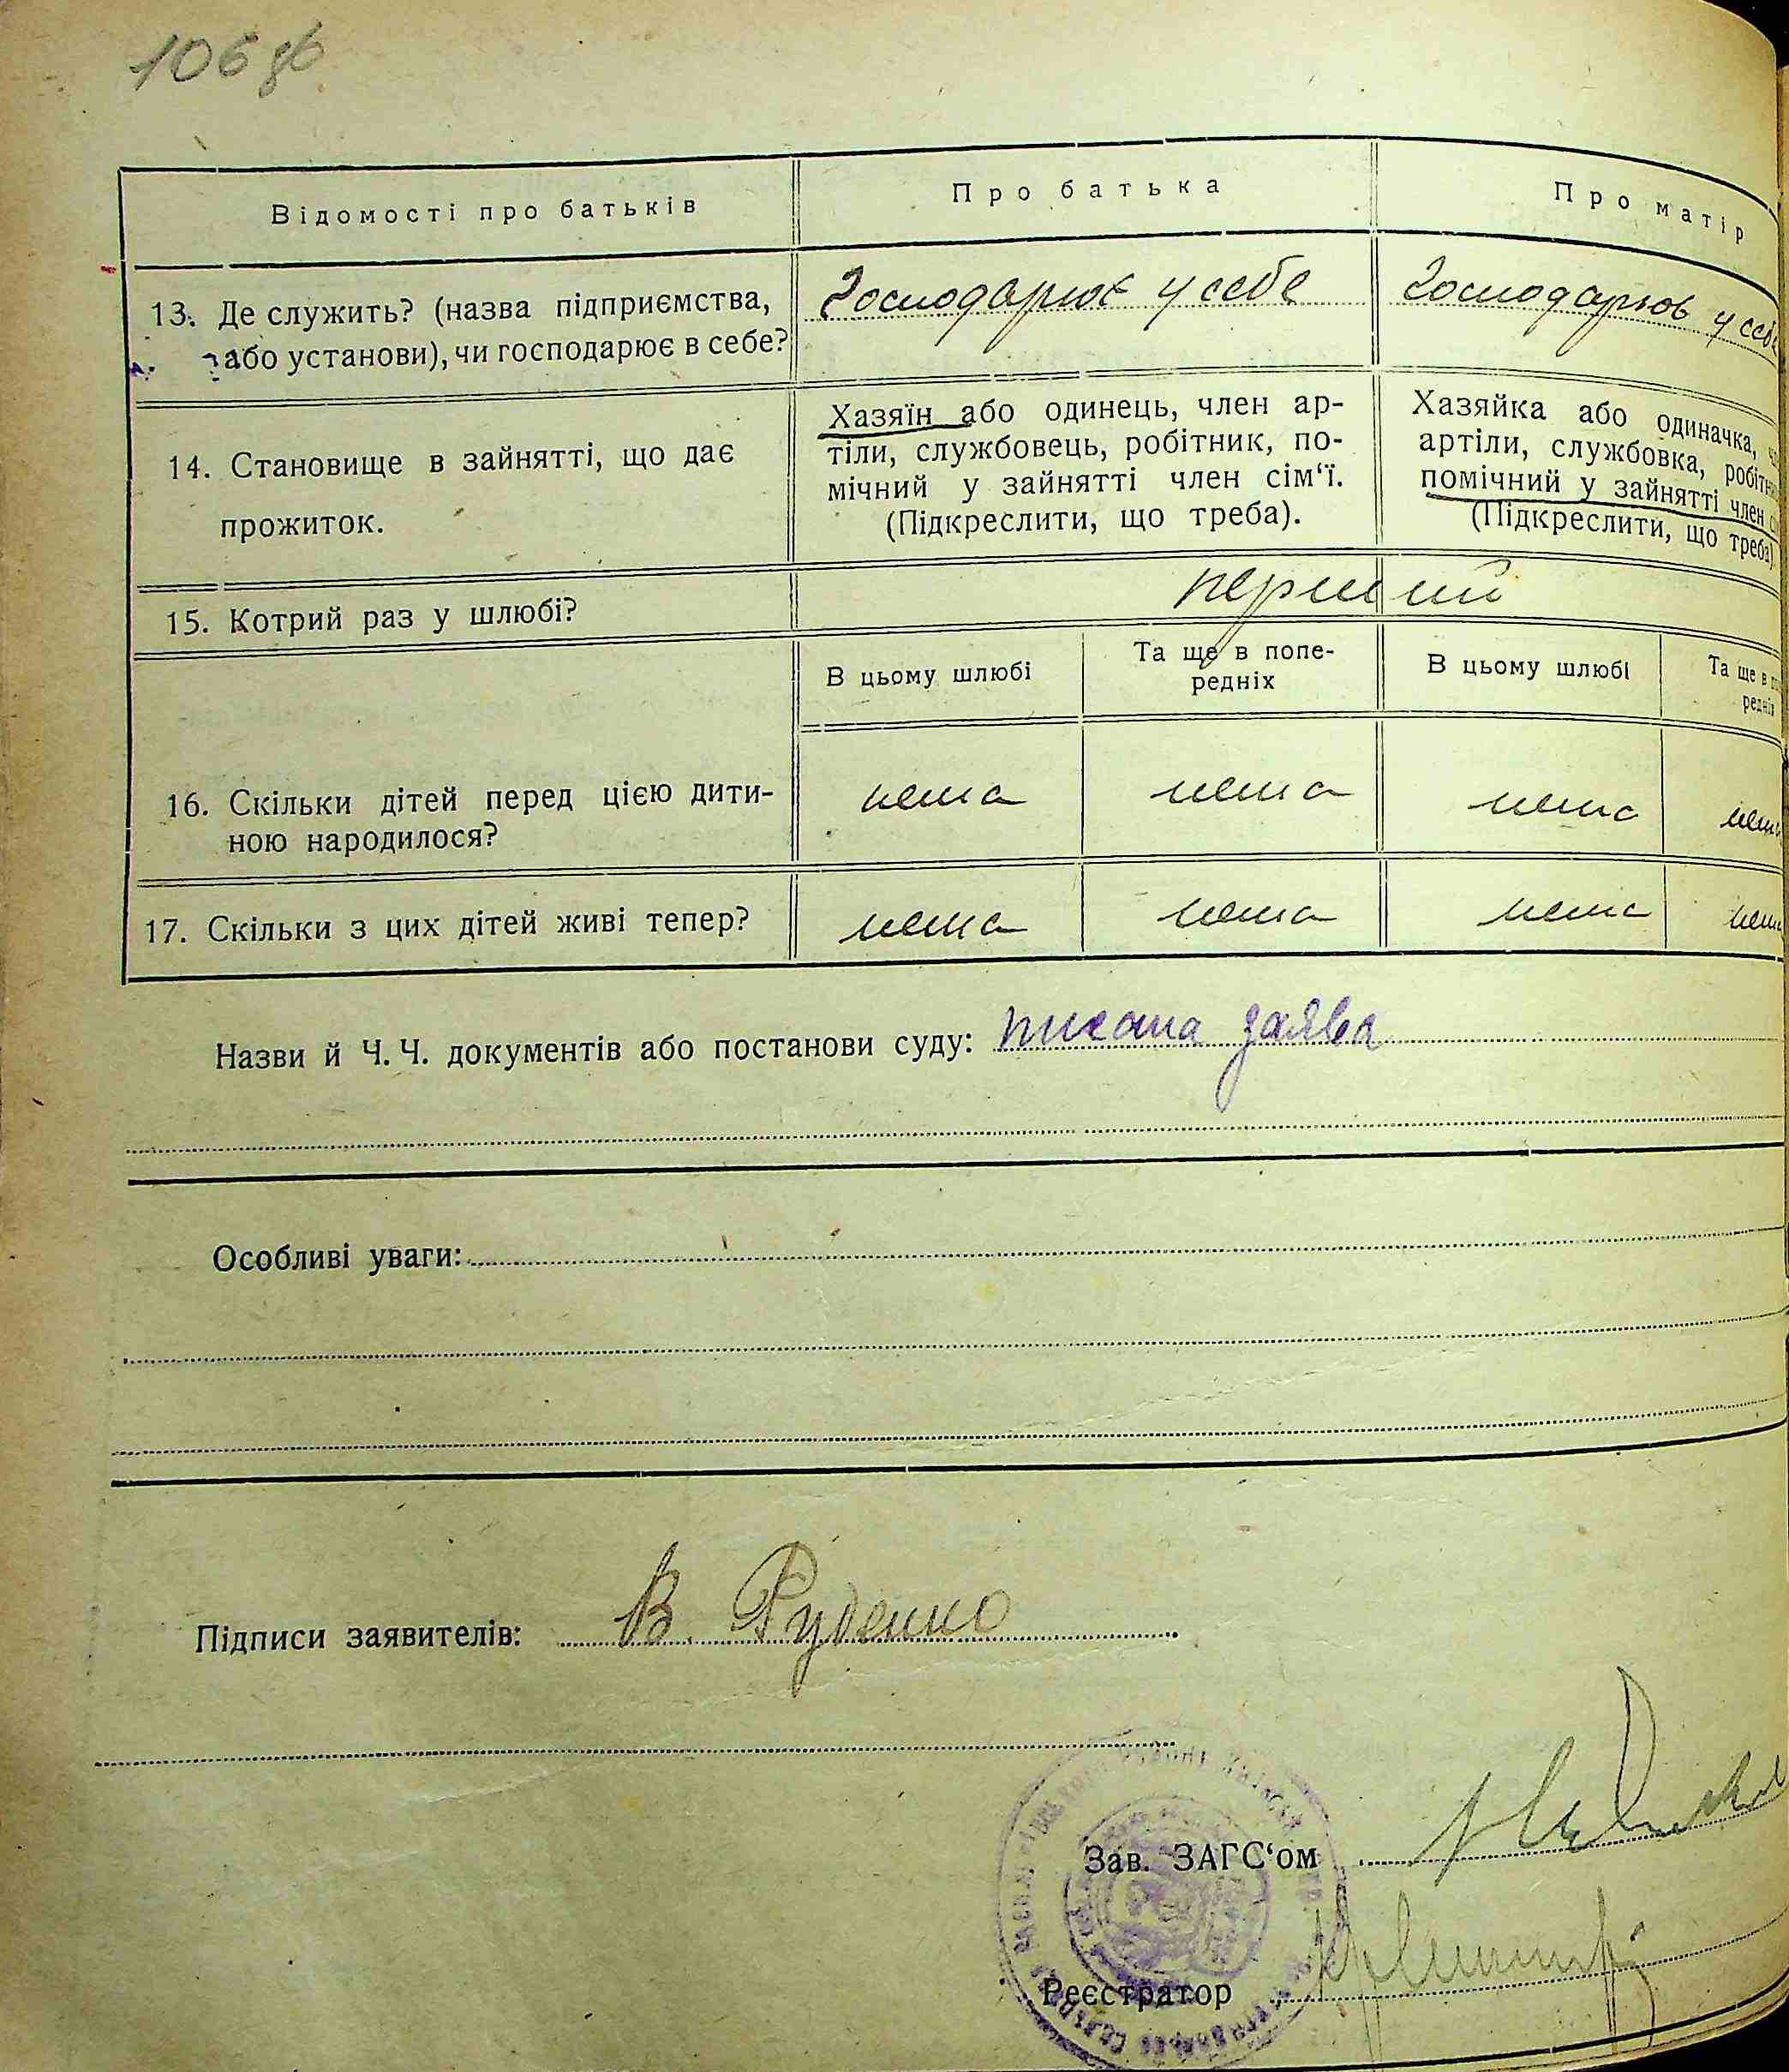 106 зб
Відомості про батьків
Про батька
Про матір
13. Де служить? (назва підприємства,
або установи), чи господарює в себе?
Господарює у себе
Господарює у себе
14. Становище в зайнятті, що дає
прожиток.
Хазяїн або одинець, член ар-
тіли, службовець, робітник, по-
мічний у зайнятті член сім‘ї.
(Підкреслити, що треба).
Хазяйка або одиначка,
артіли, службовка,
помічний у зайнятті член
(Підкреслити, що треба)
15. Котрий раз у шлюбі?
перший
В цьому шлюбі
Та ще в попе-
редніх
В цьому шлюбі
Та ще в
16. Скільки дітей перед цією дити-
ною народилося?
нема
нема
нема
нема
17. Скільки з цих дітей живі тепер?
нема
нема
нема
нема
Назви й Ч. Ч. документів або постанови суду: писана заява
Особливі уваги:
Підписи заявителів: В. Руденко
Зав. ЗАГС‘ом
Реєстратор